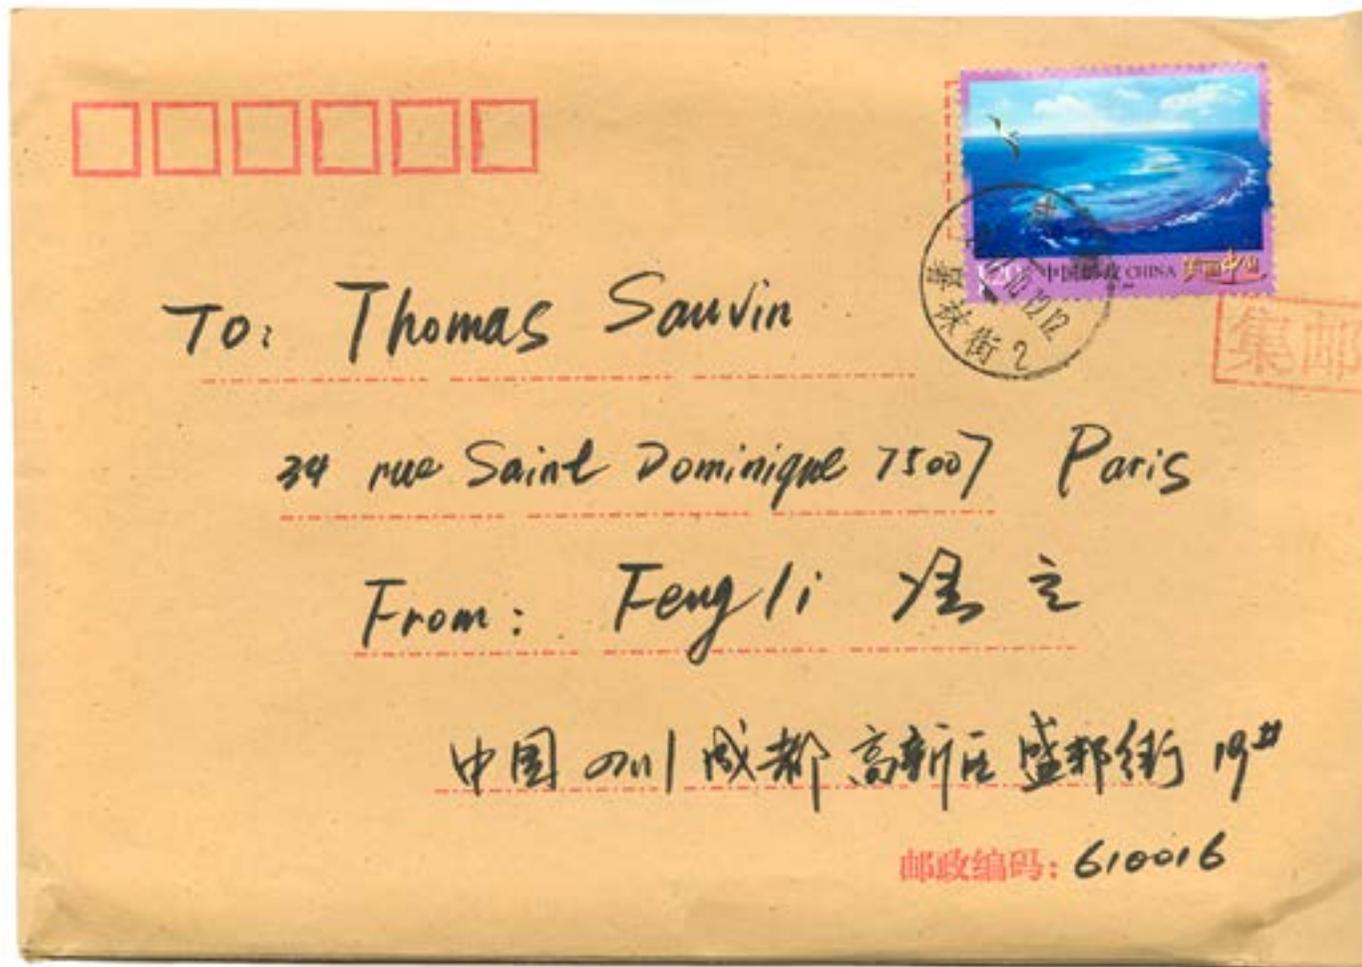 中国邮政 CHINA 美丽中国
集邮
To: Thomas Sauvin
34 rue Saint Dominique 75007 Paris
From: Feng li 冯立
中国 四川 成都 高新区 盛邦街 19#
邮政编码: 610016